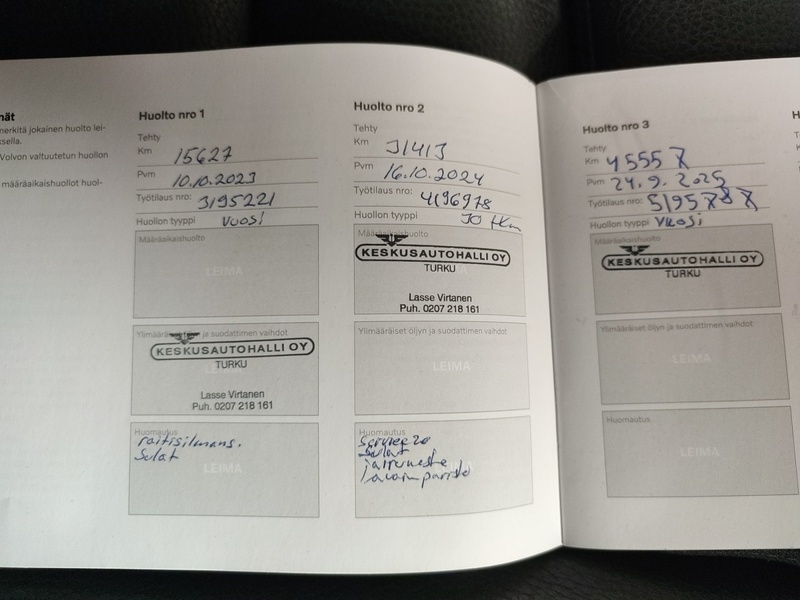 nät
merkitä jokainen huolto lei-
ksella.
Volvon valtuutetun huollon
määräaikaishuollot huol-
Huolto nro 1
Tehty
Km 15627
Pvm 10.10.2023
Työtilaus nro: 3195221
Huollon tyyppi VUOSI
Määräaikaishuolto
LEIMA
Ylimääräiset öljyn ja suodattimen vaihdot
KESKUSAUTOHALLI OY
TURKU
Lasse Virtanen
Puh. 0207 218 161
Huomautus
raitisilmans.
Sulat
LEIMA
Huolto nro 2
Tehty
Km 31413
Pvm 16.10.2024
Työtilaus nro: 4196978
Huollon tyyppi 30 tkm
Määräaikaishuolto
KESKUSAUTOHALLI OY
TURKU
Lasse Virtanen
Puh. 0207 218 161
Ylimääräiset öljyn ja suodattimen vaihdot
LEIMA
Huomautus
Sulat
jarruneste
Huolto nro 3
Tehty
Km
Pvm 24.9.2025
Työtilaus nro:
Huollon tyyppi VUOSI
Määräaikaishuolto
KESKUSAUTOHALLI OY
TURKU
Ylimääräiset öljyn ja suodattimen vaihdot
LEIMA
Huomautus
LEIMA